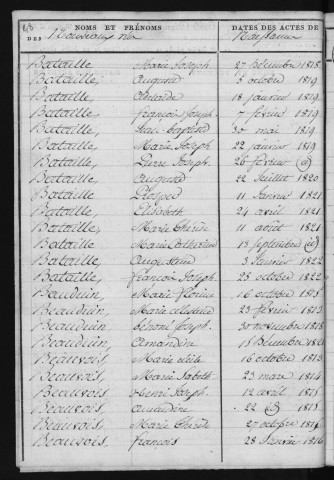 68
NOMS ET PRÉNOMS
DATES DES ACTES DE
DES Nouveaux nés
Naissance
Bataille, Marie Joseph 27 Décembre 1818
Bataille, Augustin 3 octobre 1819
Bataille, 18 janvier 1819
Bataille, françois Joseph 7 février 1819
Bataille, Jean-baptiste 30 mai 1819
Bataille, Marie Joseph 22 janvier 1819
Bataille, Pierre Joseph 26 février (id)
Bataille, Augustin 22 Juillet 1820
Bataille, Prosper 11 Janvier 1821
Bataille, Elisabeth 24 avril 1821
Bataille, Marie Thérèse 11 août 1821
Bataille, Marie Catherine 18 Septembre (id)
Bataille, Augustin 3 Janvier 1822
Bataille, françois Joseph 28 octobre 1822
Beauduin, Marie florine 16 octobre 1813
Beauduin, Marie celestine 23 février 1813
Beauduin, Joseph 30 novembre 1818
Beauduin, Amandine 15 Décembre 1821
Beauvois, Marie 16 octobre 1813
Beauvois, Marie 23 mars 1814
Beauvois, Henri Joseph 12 avril 1815
Beauvois, amandine 22 (id) 1815
Beauvois, Marie Thérèse 27 octobre 1815
Beauvois, françois 28 Janvier 1816